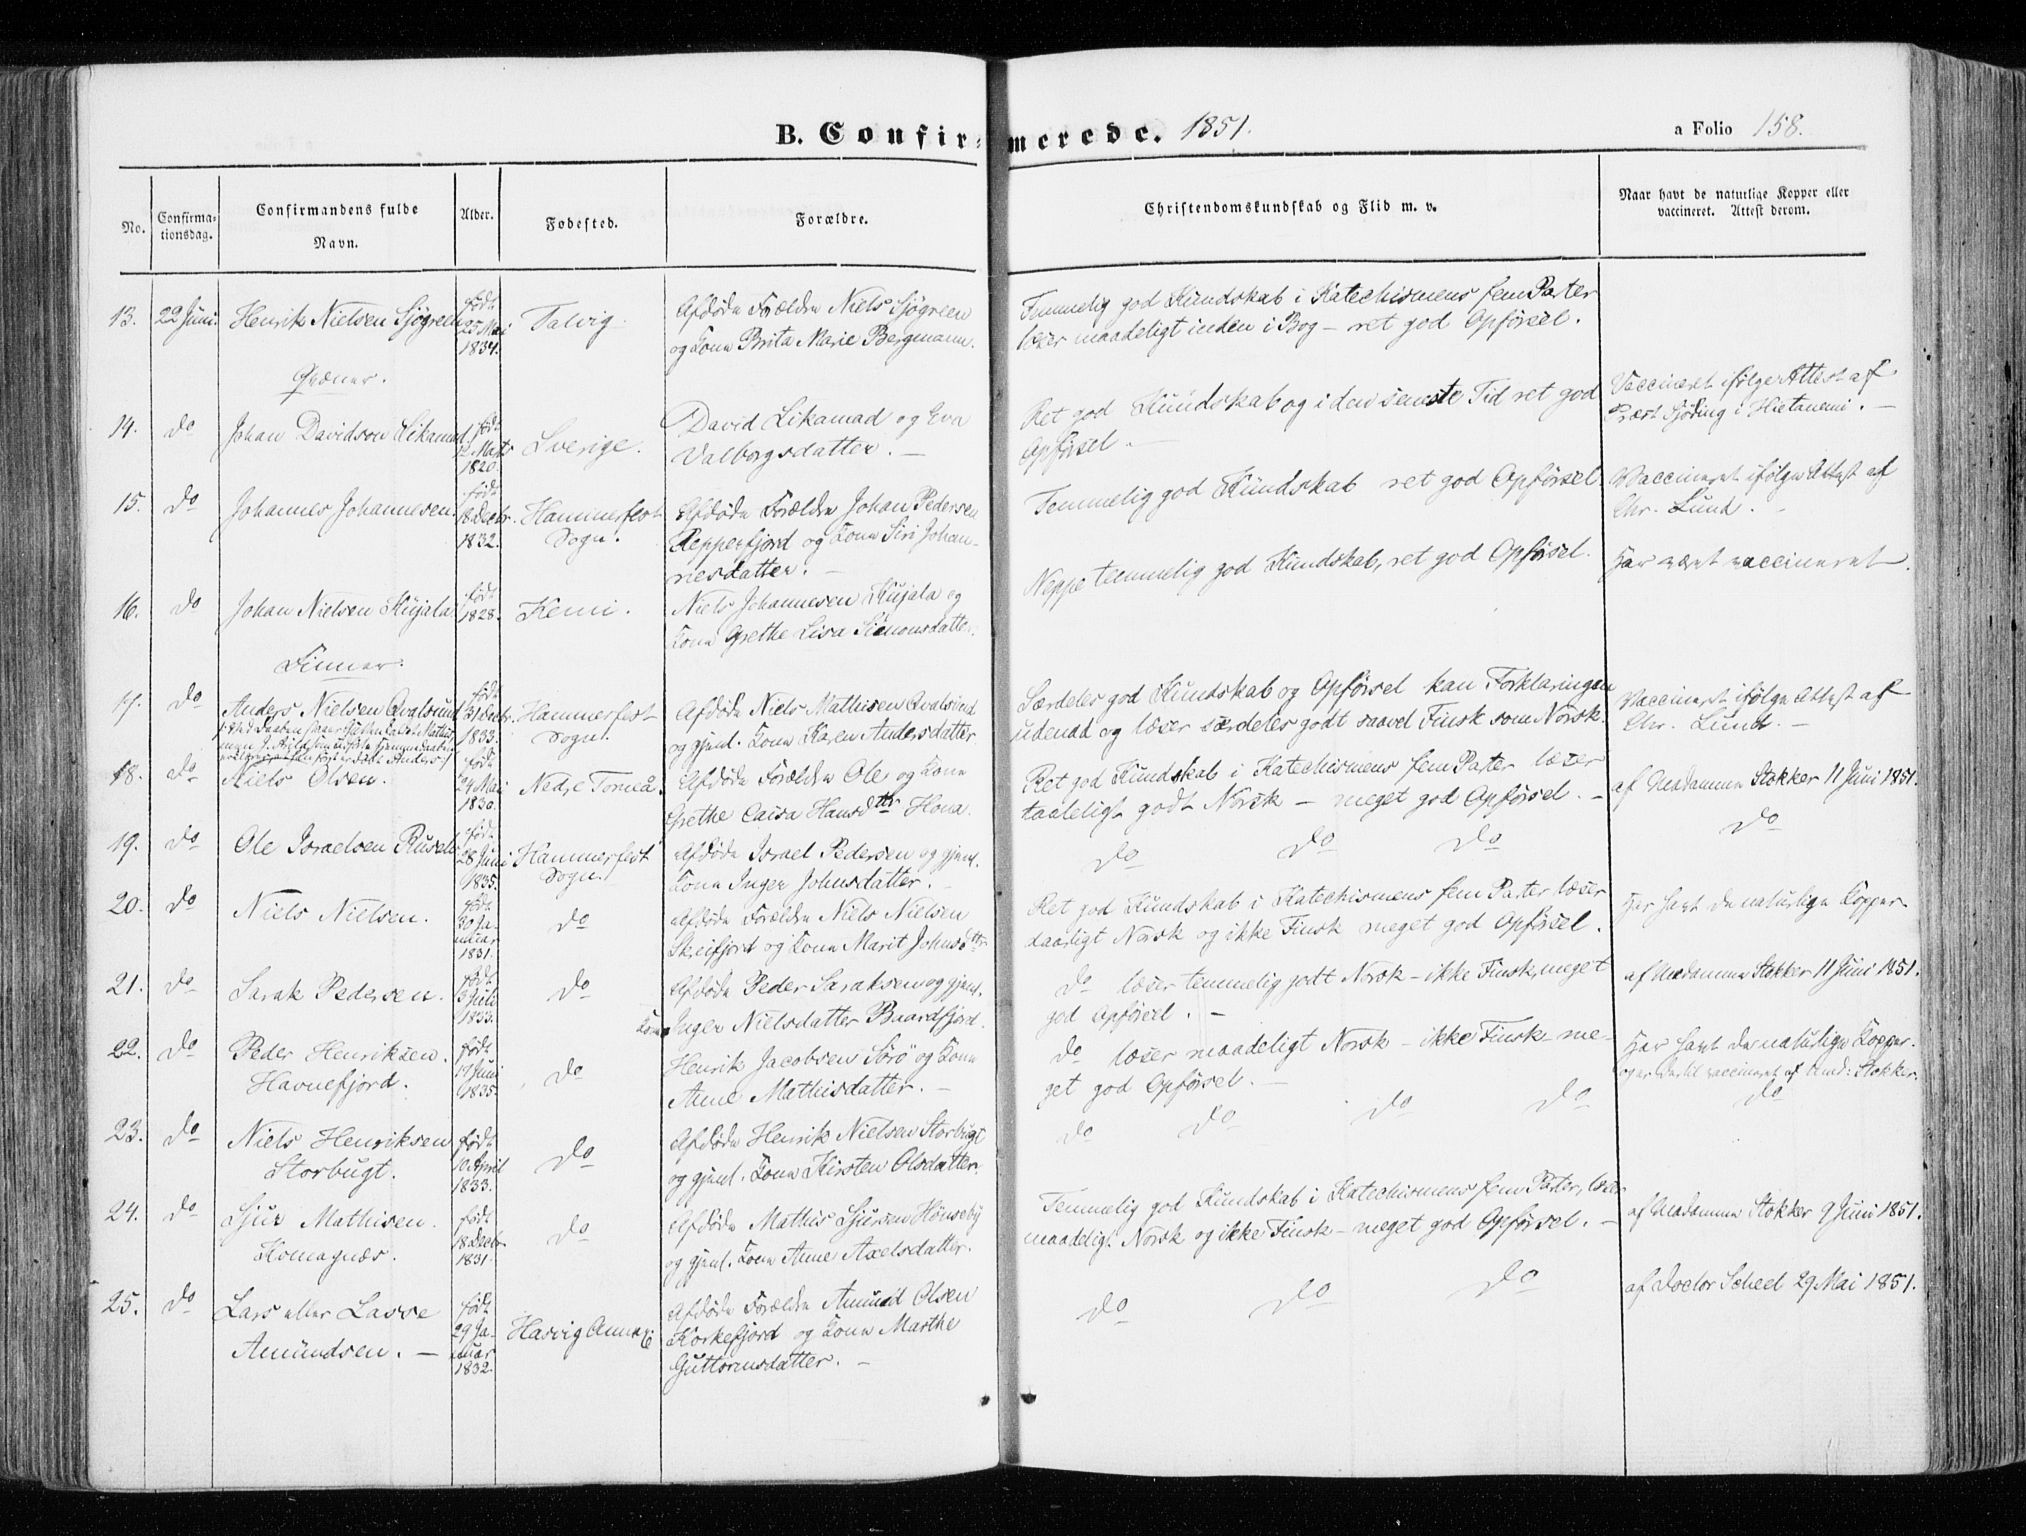 B. Confirmerede. 1851. a Folio 158.
No. Confirma-tionsdag. Confirmandens fulde Navn. Alder. Fødested. Forældre. Christendomskundskab og Flid m. v. Naar havt de naturlige Kopper eller vaccineret. Attest derom.
13. 22 Juni. Henrik Nielsen Sjøgreen født 25 Mai 1834. Talvig. Afdøde Forældre Niels Sjøgreen
og Kone Brita Marie Bergmann.
Temmelig god Kundskab i Katechismens fem Parter
læser maadeligt inden i Bog – ret god Opførsel.
Qvæner.
14. do Johan Davidsen Likamad født 12 Marts 1820. Sverige. David Likamad og Eva
Valborgsdatter. –
Ret god Kundskab og i den seneste Tid ret god
Opførsel. –
Vaccineret ifølge Attest af
Præst Sjöding i Hietanemi. –
15. do Johannes Johannesen. født 18 Decbr. 1832. Hammerfest Sogn. Afdøde Forældre Johan Pedersen
Repperfjord og Kone Siri Johan-
nesdatter. –
Temmelig god Kundskab ret god Opførsel
Vaccineret ifølge Attest af
Chr. Lund. –
16. do Johan Nielsen Kujala født 1828. Kemi. Niels Johannesen Kujala og
Kone Grethe Lisa Simonsdatter.
Neppe temmelig god Kundskab, ret god Opførsel.
Har været vaccineret.
Finner.
17. do Anders Nielsen Qvalsund født 31 Decbr. 1833. Hammerfest Sogn. Afdøde Niels Mathisen Qvalsund
og gjenl. Kone Karen Andersdatter
Særdeles god Kundskab og Opførsel kan Forklaringen
udenad og læser særdeles godt saavel Finsk som Norsk.
Vaccineret ifølge Attest af
Chr. Lund. –
18. do Niels Olsen. født 24 Mai 1830. Nedre Torneå. Afdøde Forældre Ole og Kone
Grethe Caisa Hansdtr Hona.
Ret god Kundskab i Katechismens fem Parter læser
taaleligt godt Norsk – meget god Opførsel. –
af Madamme Stokker 11 Juni 1851.
19. do Ole Israelsen født 28 Juni 1835. Hammerfest Sogn. Afdøde Israel Pedersen og gjenl.
Kone Inger Johnsdatter. –
do do do
do
20. do Niels Nielsen. født 30 Januar 1831. do Afdøde Forældre Niels Nielsen
Skreifjord og Kone Marit Johnsdtr.
Ret god Kundskab i Katechismens fem Parter læser
daarligt Norsk og ikke Finsk meget god Opførsel.
Har havt de naturlige Kopper
21. do Sarak Pedersen. født 3 Juli 1833. do Afdøde Peder Saraksen og gjenl.
Kone Inger Nielsdatter Baardfjord.
do læser temmelig godt Norsk – ikke Finsk, meget
god Opførsel. –
af Madamme Stokker 11 Juni 1851.
22. do Peder Henriksen. Havnefjord. født 17 Juni 1835. do Henrik Jacobsen Sörö og Kone
Anne Mathisdatter. –
do læser maadeligt Norsk – ikke Finsk – me-
get god Opførsel. –
Har havt de naturlige Kopper.
og er dertil vaccineret af Mad: Stokker.
23. do Niels Henriksen Storbugt. født 10 April 1833. do Afdøde Henrik Nielsen Storbugt
og gjenl. Kone Kirsten Olsdatter.
do do do do
do
24. do Sjur Mathisen. Komagnæs. født 18 Decbr 1831. do Afdøde Mathis Sjursen Hönseby
og gjenl. Kone Anne Axelsdatter.
Temmelig god Kundskab i Katechismens fem Parter, læser
maadeligt Norsk og ikke Finsk – meget god Opførsel. –
af Madamme Stokker 9 Juni 1851.
25. do Lars eller Lasse Amundsen. – født 29 Januar 1832. Hasvig Annex Afdøde Forældre Amund Olsen
Korkefjord og Kone Marthe
Guttormsdatter. –
do do do
af Doctor Scheel 29 Mai 1851.